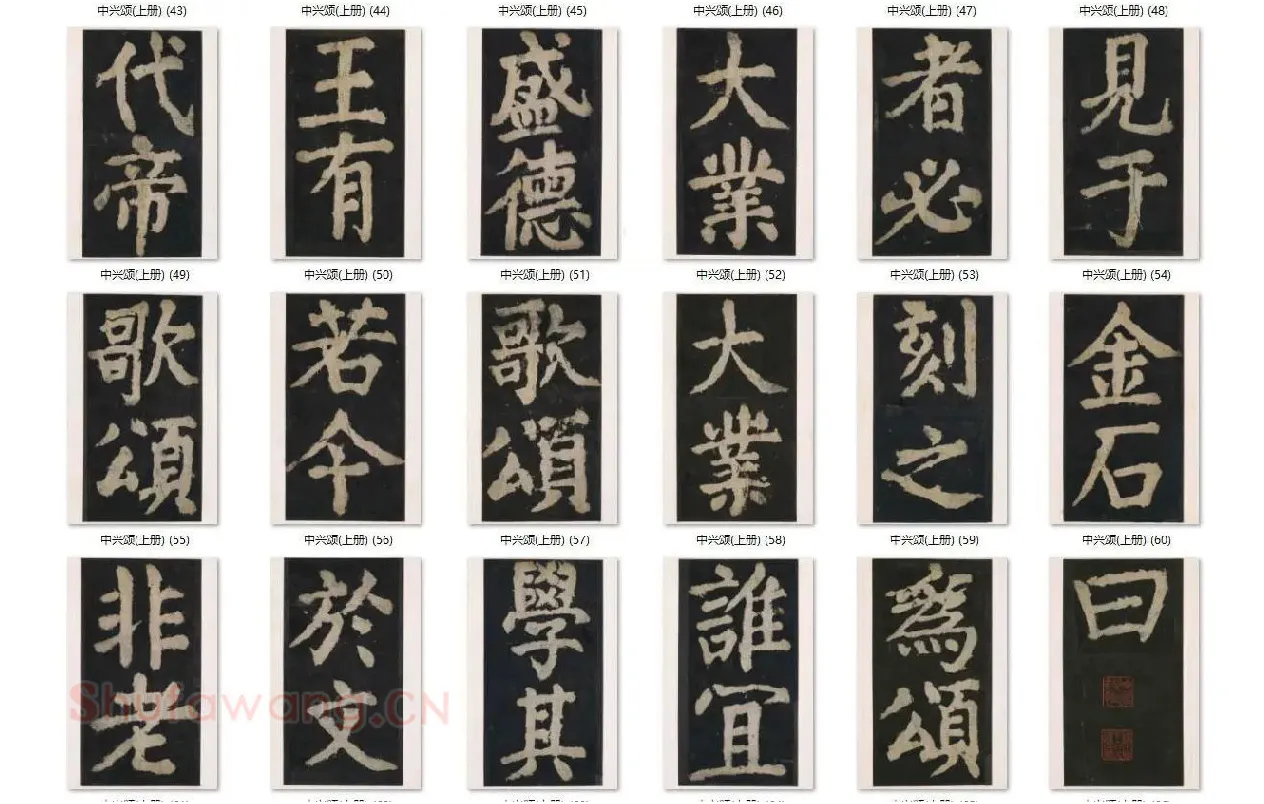 中兴颂(上册) (43)
中兴颂(上册) (44)
中兴颂(上册) (45)
中兴颂(上册) (46)
中兴颂(上册) (47)
中兴颂(上册) (48)
代帝
王有
盛德
大業
者必
見于
中兴颂(上册) (49)
中兴颂(上册) (50)
中兴颂(上册) (51)
中兴颂(上册) (52)
中兴颂(上册) (53)
中兴颂(上册) (54)
歌頌
若今
歌頌
大業
刻之
金石
中兴颂(上册) (55)
中兴颂(上册) (56)
中兴颂(上册) (57)
中兴颂(上册) (58)
中兴颂(上册) (59)
中兴颂(上册) (60)
非老
於文
學其
誰宜
為頌
曰
Shufawang.CN